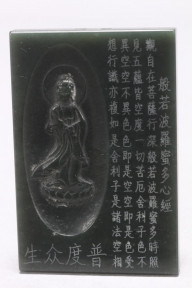 般若波羅蜜多心經
觀自在菩薩行深般若波羅蜜多時照
見五蘊皆空度一切苦厄舍利子色不
異空空不異色色即是空空即是色受
想行識亦復如是舍利子是諸法空相
普度众生